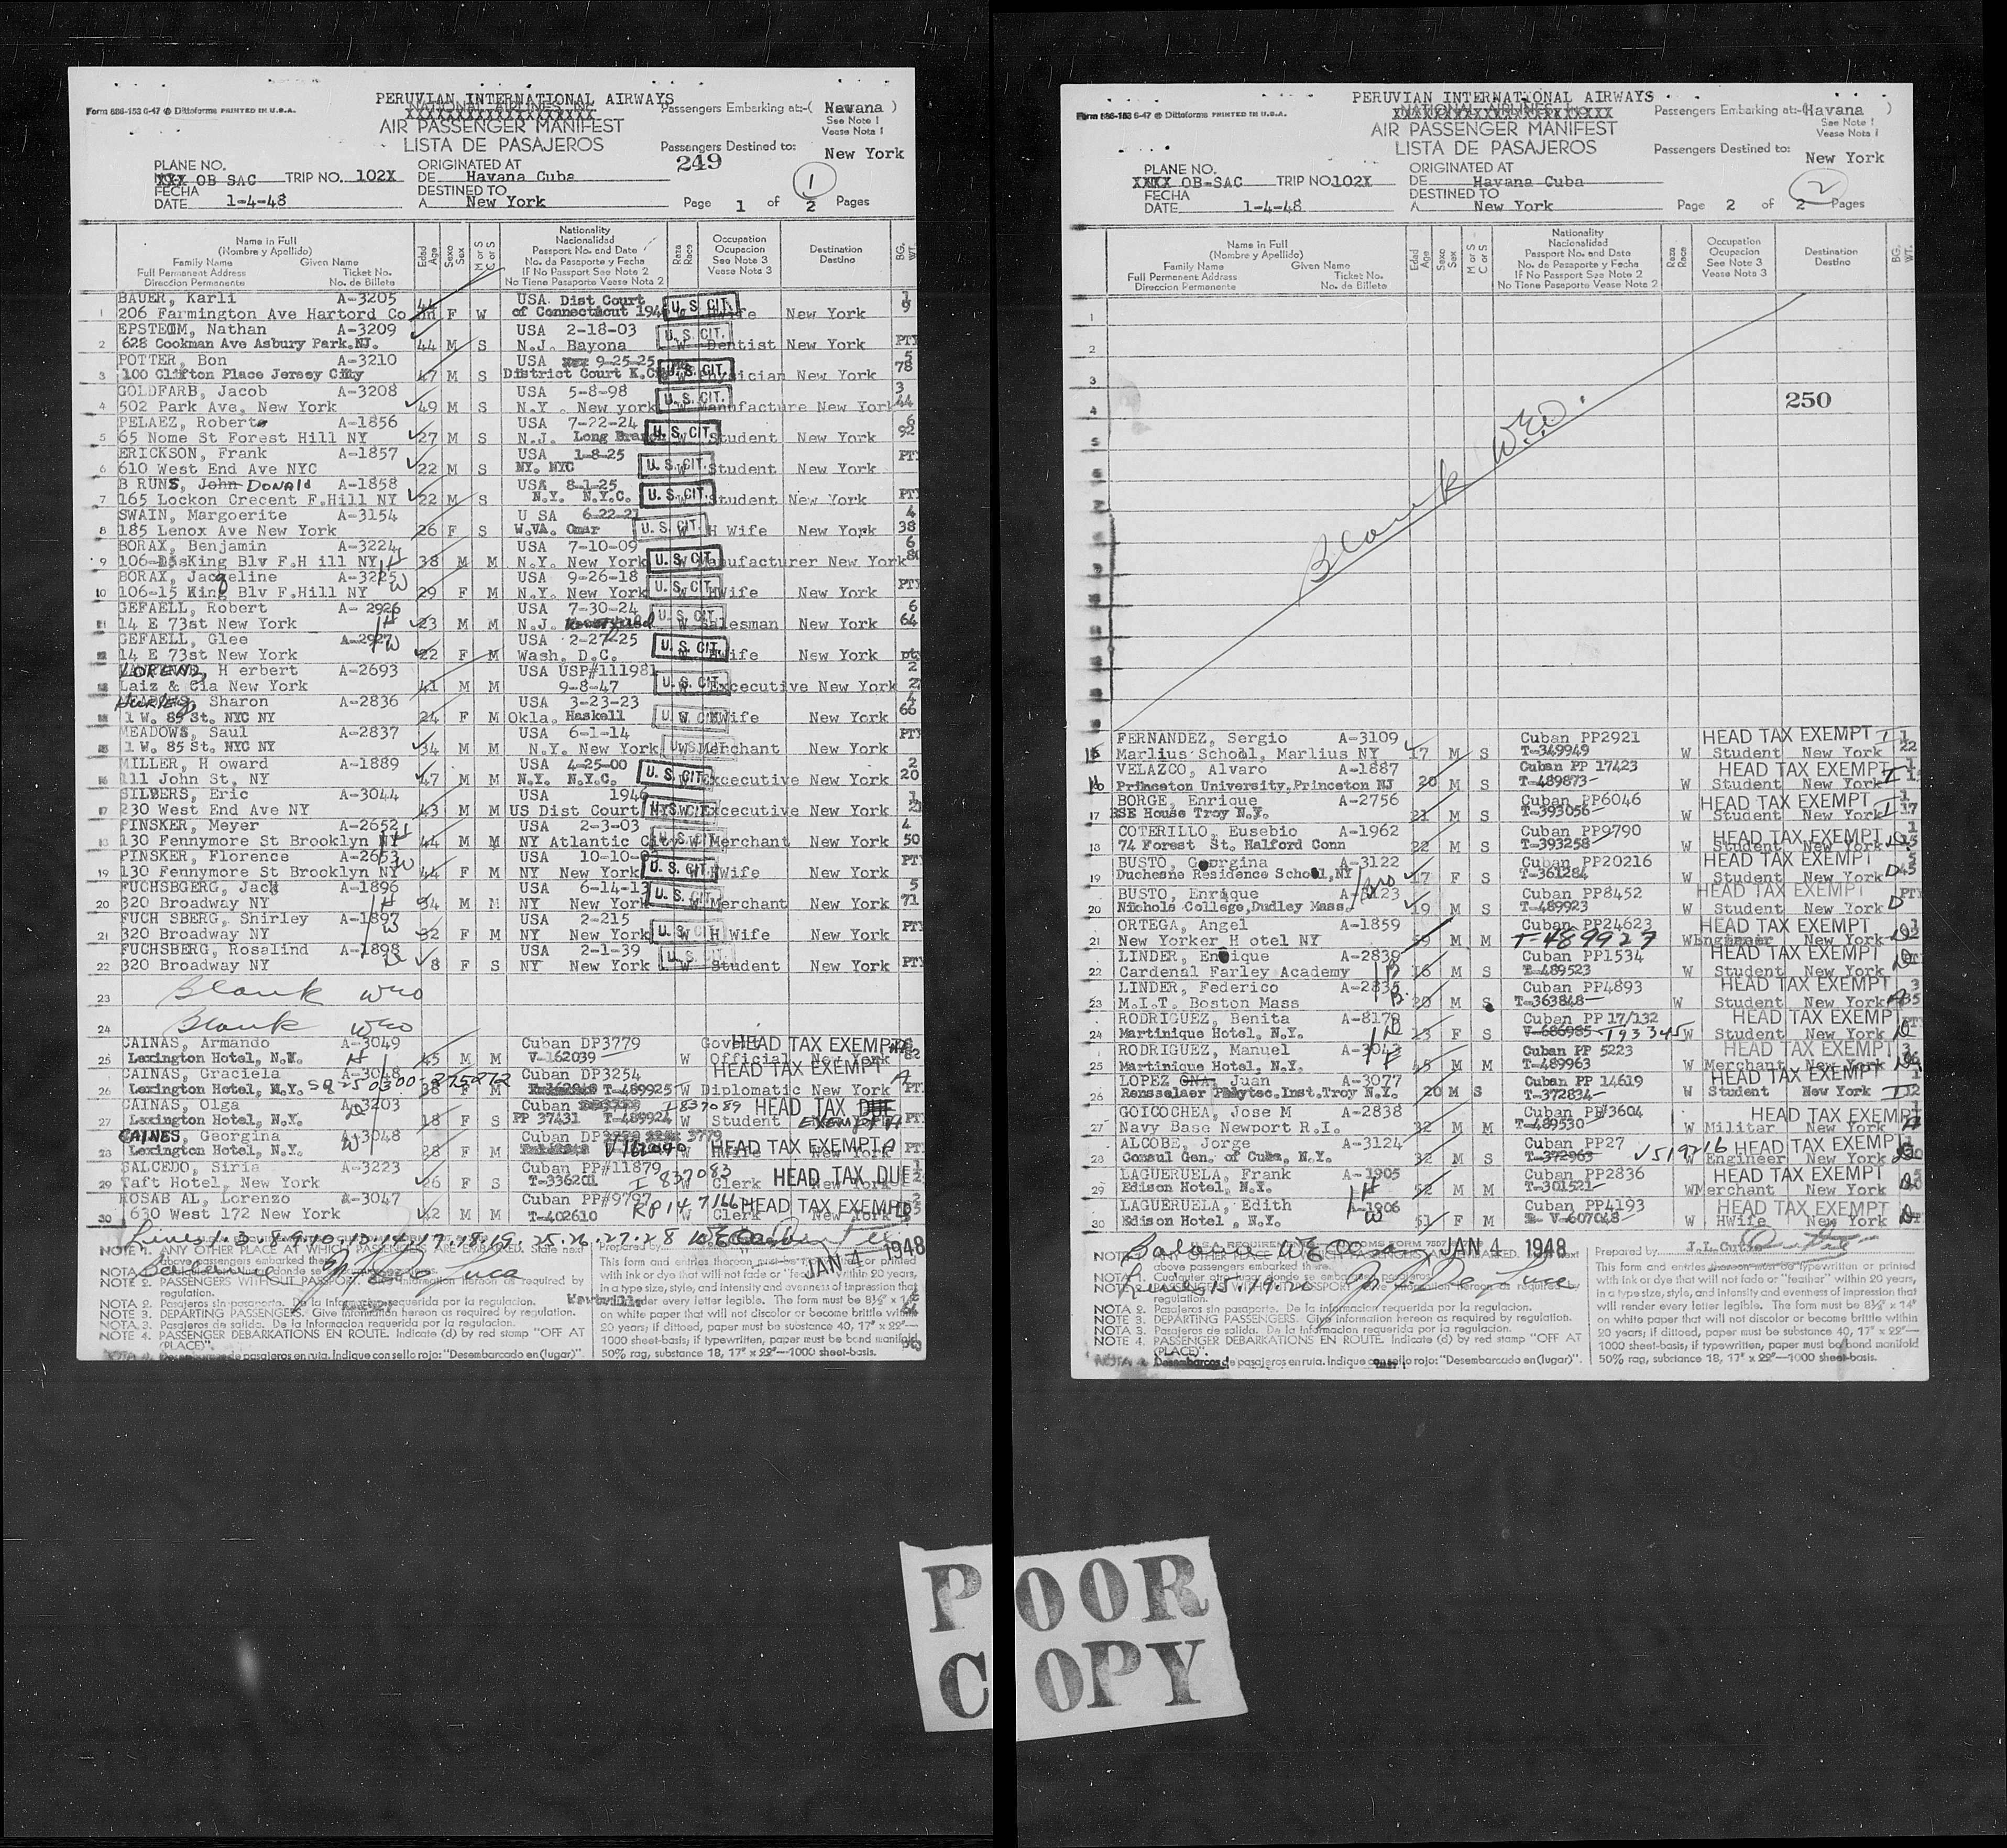 Form 886-153 6-47 @ Dittoforms PRINTED IN U.S.A.
PERUVIAN INTERNATIONAL AIRWAYS
AIR PASSENGER MANIFEST
LISTA DE PASAJEROS
Passengers Embarking at:-( Havana )
See Note 1
Vease Nota 1
Passengers Destined to: New York
249
PLANE NO. XXX OB SAC TRIP NO. 102X
ORIGINATED AT
DE Havana Cuba
FECHA
DATE 1-4-48
DESTINED TO
A New York
1
Page 1 of 2 Pages
Name in Full
(Nombre y Apellido)
Family Name Given Name
Full Permanent Address Ticket No.
Direccion Permanente No. de Billete
Edad Age
Sexo Sex
M or S C or S
Nationality
Nacionalidad
Passport No. and Date
No. de Pasaporte y Fecha
If No Passport See Note 2
No Tiene Pasaporte Vease Nota 2
Raza Race
Occupation
Ocupacion
See Note 3
Vease Nota 3
Destination
Destino
BG. WT.
BAUER, Karli A-3205 USA Dist Court
1 206 Farmington Ave Hartord Co F W of Connecticut U.S. CIT. New York
EPSTEIM, Nathan A-3209 USA 2-18-03
2 628 Cookman Ave Asbury Park.NJ. 44 M S N.J. Bayona U.S. CIT. W Dentist New York PTY
POTTER, Bon A-3210 USA 9-25-25 5
3 100 Clifton Place Jersey City 47 M S District Court U.S. CIT. W Physician New York 78
GOLDFARB, Jacob A-3208 USA 5-8-98 3
4 502 Park Ave, New York 49 M S N.Y. New york U.S. CIT. W Manufacture New York 44
PELAEZ, Roberto A-1856 USA 7-22-24 6
5 65 Nome St Forest Hill NY 27 M S N.J. Long Branch U.S. CIT. Student New York 92
ERICKSON, Frank A-1857 USA 1-8-25 PTY
6 610 West End Ave NYC 22 M S NY. NYC U.S. CIT. Student New York
B RUNS, John DONALD A-1858 USA 8-1-25
7 165 Lockon Crecent F.Hill NY 22 M S N.Y. N.Y.C. U.S. CIT. W Student New York PTY
SWAIN, Margoerite A-3154 U SA 6-22-21 4
8 185 Lenox Ave New York 26 F S W.VA. Omar U.S. CIT. H Wife New York 38
BORAX, Benjamin A-3224 USA 7-10-09 6
9 106-15 King Blv F.H ill NY H 38 M M N.Y. New York U.S. CIT. W Manufacturer New York 80
BORAX, Jacqeline A-3225 USA 9-26-18
10 106-15 King Blv F.Hill NY W 29 F M N.Y. New York U.S. CIT. W HWife New York PTY
GEFAELL, Robert A- 2926 USA 7-30-24 6
11 14 E 73st New York H 23 M M N.J. U.S. CIT. W Salesman New York 64
GEFAELL, Glee A-2927 USA 2-27-25
12 14 E 73st New York W 22 F M Wash, D.C. U.S. CIT. HWife New York pty
LORENZ, H erbert A-2693 USA USP#111981 2
13 Laiz & Cia New York 41 M M 9-8-47 U.S. CIT. W Excecutive New York 2
Sharon A-2836 USA 3-23-23 4
14 1 W. 85 St. NYC NY 24 F M Okla. Haskell U.S. CIT. W HWife New York 66
MEADOWS, Saul A-2837 USA 6-1-14 PTY
15 1 W. 85 St. NYC NY 34 M M N.Y. New York U.S. CIT. W Merchant New York
MILLER, H oward A-1889 USA 4-25-00 2
16 111 John St. NY 47 M M N.Y. N.Y.C. U.S. CIT. Excecutive New York 20
SILBERS, Eric A-3044 USA 1946 1
17 230 West End Ave NY 43 M M US Dist Court NY U.S. CIT. Excecutive New York 21
PINSKER, Meyer A-2652 USA 2-3-03 4
18 130 Fennymore St Brooklyn NY H 44 M M NY Atlantic City U.S. CIT. W Merchant New York 50
PINSKER, Florence A-2653 USA 10-10- PTY
19 130 Fennymore St Brooklyn NY W 44 F M NY New York U.S. CIT. HWife New York
FUCHSBGERG, Jack A-1896 USA 6-14-13 5
20 320 Broadway NY H 34 M M NY New York U.S. CIT. W Merchant New York 71
FUCH SBERG, Shirley A-1897 USA 2-215
21 320 Broadway NY W 32 F M NY New York U.S. CIT. H Wife New York PTY
FUCHSBERG, Rosalind A-1898 USA 2-1-39
22 320 Broadway NY D 8 F S NY New York U.S. CIT. W Student New York PTY
23 Blank WEO
24 Blank WEO
CAINAS, Armando A-3049 Cuban DP3779 HEAD TAX EXEMPT
25 Lexington Hotel, N.Y. H 45 M M V-162039 W Official New York 82
CAINAS, Graciela A-3048 Cuban DP3254 HEAD TAX EXEMPT A
26 Lexington Hotel, N.Y. 38 F M T-489925 W Diplomatic New York PT
CAINAS, Olga A-3203 Cuban I 837089 HEAD TAX DUE
27 Lexington Hotel, N.Y. 18 F S PP 37431 T-489924 W Student EXEMPT A PT
CAINES, Georgina A-3048 Cuban DP 3779 HEAD TAX EXEMPT A
28 Lexington Hotel, N.Y. 28 F M V162040 New York PT
SALCEDO, Siria A-3223 Cuban PP#11879 I 837083 HEAD TAX DUE
29 Taft Hotel, New York 26 F S T-336201 W Clerk New York
ROSAB AL, Lorenzo A-3047 Cuban PP#9797 RP147166 HEAD TAX EXEMPT
30 630 West 172 New York 42 M M T-402610 W Clerk New York
Lines 1.3.8.9.10.13.14.17.18.19.25.26.27.28
Balance
JAN 4 1948
NOTE 1. ANY OTHER PLACE AT WHICH PASSENGERS ARE EMBARKED. State next above passengers embarked there.
NOTE 2. PASSENGERS WITHOUT PASSPORT. Give information hereon as required by regulation.
NOTA 2. Pasajeros sin pasaporte. De la informacion requerida por la regulacion.
NOTE 3. DEPARTING PASSENGERS. Give information hereon as required by regulation.
NOTA 3. Pasajeros de salida. De la informacion requerida por la regulacion.
NOTE 4. PASSENGER DEBARKATIONS EN ROUTE. Indicate (d) by red stamp "OFF AT (PLACE)".
NOTA 4. Desembarcos de pasajeros en ruta. Indique con sello rojo: "Desembarcado en (lugar)".
Prepared by
This form and entries thereon must be typewritten or printed
with ink or dye that will not fade or "feather" within 20 years,
in a type size, style, and intensity and evenness of impression that
will render every letter legible. The form must be 8½" x 14"
on white paper that will not discolor or become brittle within
20 years; if dittoed, paper must be substance 40, 17" x 22"—
1000 sheet-basis; if typewritten, paper must be bond manifold
50% rag, substance 18, 17" x 22"—1000 sheet-basis.
Form 886-153 6-47 @ Dittoforms PRINTED IN U.S.A.
PERUVIAN INTERNATIONAL AIRWAYS
AIR PASSENGER MANIFEST
LISTA DE PASAJEROS
Passengers Embarking at:-( Havana )
See Note 1
Vease Nota 1
Passengers Destined to: New York
PLANE NO. XXXX OB-SAC TRIP NO. 102X
ORIGINATED AT
DE Havana Cuba
FECHA
DATE 1-4-48
DESTINED TO
A New York
2
Page 2 of 2 Pages
Name in Full
(Nombre y Apellido)
Family Name Given Name
Full Permanent Address Ticket No.
Direccion Permanente No. de Billete
Edad Age
Sexo Sex
M or S C or S
Nationality
Nacionalidad
Passport No. and Date
No. de Pasaporte y Fecha
If No Passport See Note 2
No Tiene Pasaporte Vease Nota 2
Raza Race
Occupation
Ocupacion
See Note 3
Vease Nota 3
Destination
Destino
BG. WT.
1
2
3
4
250
Blank W.E.O.
FERNANDEZ, Sergio A-3109 Cuban PP2921 HEAD TAX EXEMPT I 1
15 Marlius School, Marlius NY 17 M S T-349949 W Student New York 22
VELAZCO, Alvaro A-1887 Cuban PP 17423 HEAD TAX EXEMPT I
16 Princeton University,Princeton NJ 20 M S T-489873 W Student New York
BORGE, Enrique A-2756 Cuban PP6046 HEAD TAX EXEMPT I 1
17 RSE House Troy N.Y. 21 M S T-393056 W Student New York 17
COTERILLO, Eusebio A-1962 Cuban PP9790 HEAD TAX EXEMPT
18 74 Forest St. Halford Conn 22 M S T-393258 W Student New York
BUSTO, Georgina A-3122 Cuban PP20216 HEAD TAX EXEMPT
19 Duchesne Residence School,NY 17 F S T-361284 W Student New York D 45
BUSTO, Enrique A-3123 Cuban PP8452 HEAD TAX EXEMPT
20 Nichols College,Dudley Mass. 19 M S T-489923 W Student New York D
ORTEGA, Angel A-1859 Cuban PP24623 HEAD TAX EXEMPT
21 New Yorker H otel NY 59 M M T-489927 W Engineer New York
LINDER, Enrique A-2839 Cuban PP1534 HEAD TAX EXEMPT
22 Cardenal Farley Academy 16 M S T-489523 W Student New York
LINDER, Federico A-2835 Cuban PP4893 HEAD TAX EXEMPT 3
23 M.I.T. Boston Mass 20 M S T-363848 W Student New York 35
RODRIGUEZ, Benita A-8178 Cuban PP 17/132 HEAD TAX EXEMPT
24 Martinique Hotel, N.Y. 13 F S V-686985 T193345 W Student New York
RODRIGUEZ, Manuel A-3043 Cuban PP 5223 HEAD TAX EXEMPT
25 Martinique Hotel, N.Y. 45 M M T-489963 W Merchant New York
LOPEZ ONA, Juan A-3077 Cuban PP 14619 HEAD TAX EXEMPT
26 Rensselaer Polytec.Inst.Troy N.Y. 20 M S T-372834 W Student New York I
GOICOCHEA, Jose M A-2838 Cuban PP#3604 HEAD TAX EXEMPT
27 Navy Base Newport R.I. 32 M M T-489530 W Militar New York A
ALCOBE, Jorge A-3124 Cuban PP27 V519216 HEAD TAX EXEMPT
28 Consul Gen. of Cuba, N.Y. 32 M S T-372963 W Engineer New York
LAGUERUELA, Frank A-1905 Cuban PP2836 HEAD TAX EXEMPT
29 Edison Hotel, N.Y. H 52 M M T-301521 W Merchant New York
LAGUERUELA, Edith A-1906 Cuban PP4193 HEAD TAX EXEMPT
30 Edison Hotel , N.Y. W 51 F M V-607048 W HWife New York
Balance
JAN 4 1948
Lines 15.19.20
above passengers embarked there.
NOTA 1. Cualquier otro lugar donde se embarquen pasajeros.
NOTA 2. Pasajeros sin pasaporte. De la informacion requerida por la regulacion.
NOTE 3. DEPARTING PASSENGERS. Give information hereon as required by regulation.
NOTA 3. Pasajeros de salida. De la informacion requerida por la regulacion.
NOTE 4. PASSENGER DEBARKATIONS EN ROUTE. Indicate (d) by red stamp "OFF AT (PLACE)".
NOTA 4. Desembarcos de pasajeros en ruta. Indique con sello rojo: "Desembarcado en (lugar)".
Prepared by J.L.
This form and entries thereon must be typewritten or printed
with ink or dye that will not fade or "feather" within 20 years,
in a type size, style, and intensity and evenness of impression that
will render every letter legible. The form must be 8½" x 14"
on white paper that will not discolor or become brittle within
20 years; if dittoed, paper must be substance 40, 17" x 22"—
1000 sheet-basis; if typewritten, paper must be bond manifold
50% rag, substance 18, 17" x 22"—1000 sheet-basis.
POOR
COPY